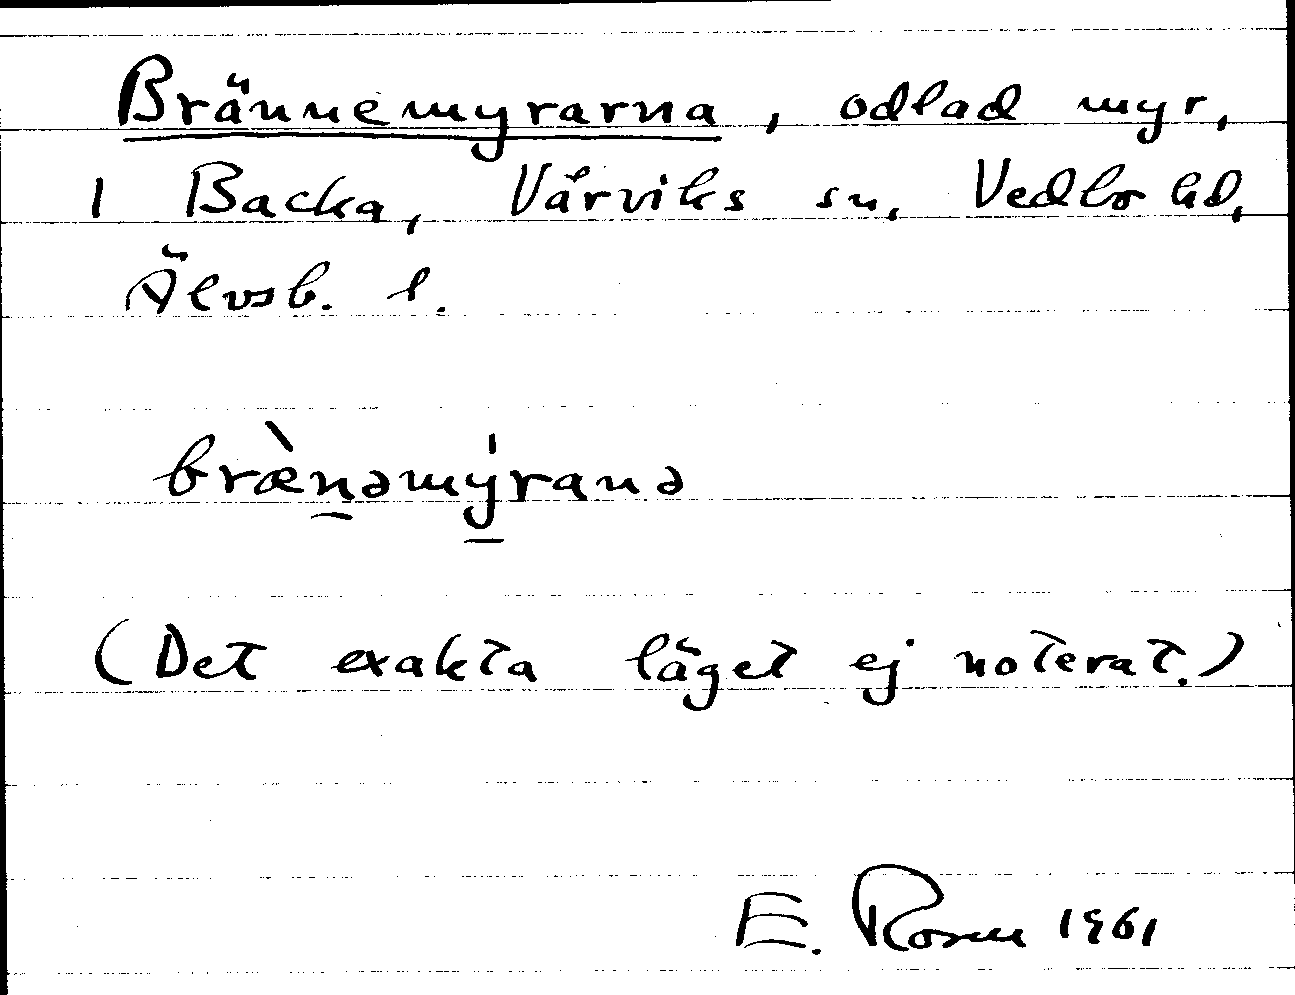 Brännemyrarna, odlad myr,
1 Backa, Vårviks sn, Vedbo hd,
Älvsb. l.
bræ̀nəmýranə
(Det exakta läget ej noterat.)
E. Rosen 1961